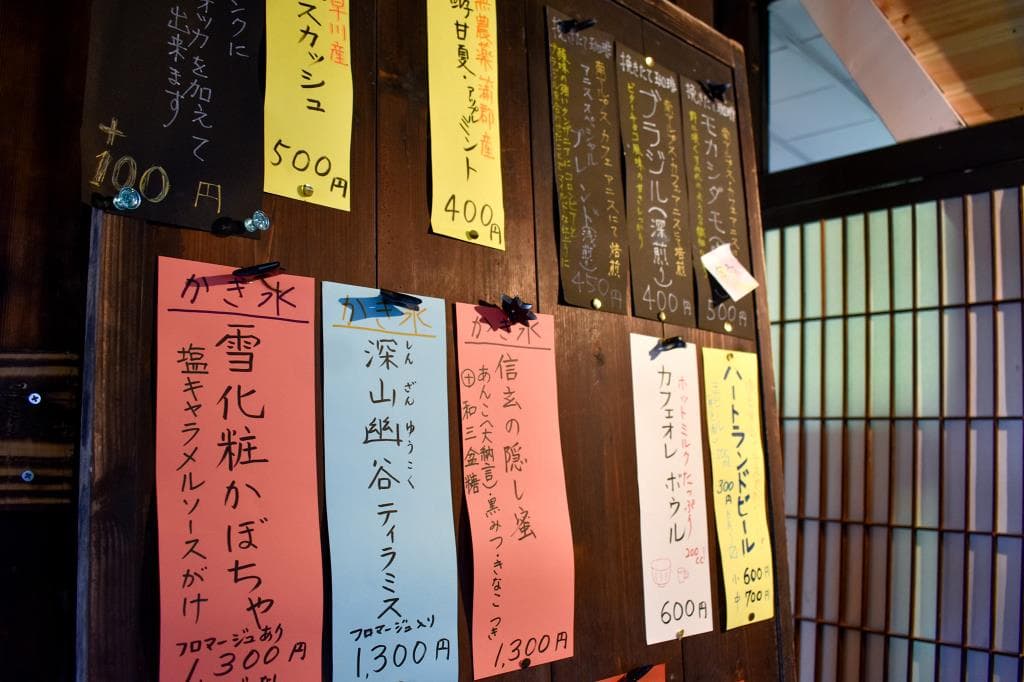 ンクに
ォッカを加えて
出来ます
+100円
早川産
スカッシュ
500円
無農薬 蒲郡産
酵甘夏・アップルミント
400円
挽きたて珈琲
南アルプスカフェアニスにて焙煎
アニススペシャル
ブレンド(浅煎り)
450円
挽きたて珈琲
南アルプスカフェアニスにて焙煎
ブラジル(深煎り)
400円
モカシダモ
500円
かき氷
雪化粧かぼちゃ
塩キャラメルソースがけ
フロマージュあり
1,300円
かき氷
しんざんゆうこく
深山幽谷ティラミス
フロマージュ入り
1,300円
かき氷
信玄の隠し蜜
あんこ(大納言)・黒みつ・きなこつき
⊕和三盆糖
1,300円
ホットミルクたっぷり
カフェオレ ボウル
200cc!
600円
ハートランドビール
300円
小 600円
中 700円